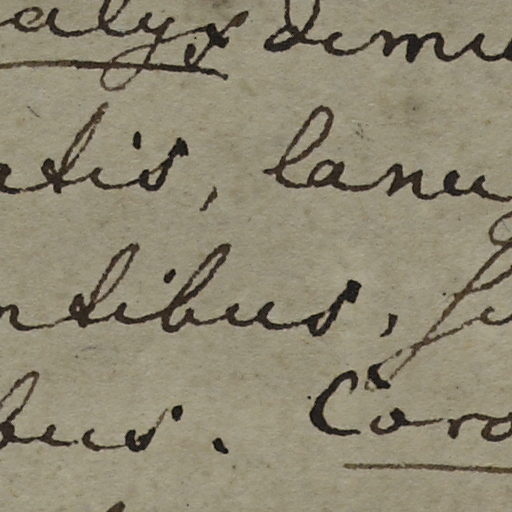 alyx dimi
atis, lanu
ntibus, fu
bus. Coro